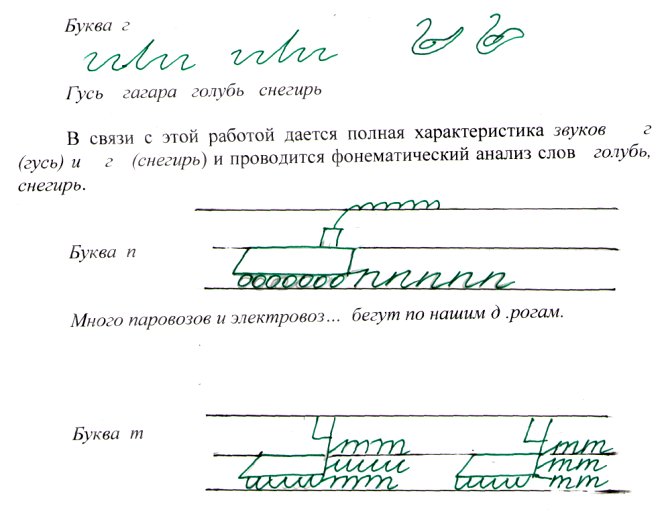 Буква г
Гусь гагара голубь снегирь
В связи с этой работой дается полная характеристика звуков г
(гусь) и г (снегирь) и проводится фонематический анализ слов голубь,
снегирь.
Буква п
ппппп
Много паровозов и электровоз... бегут по нашим д .рогам.
Буква т